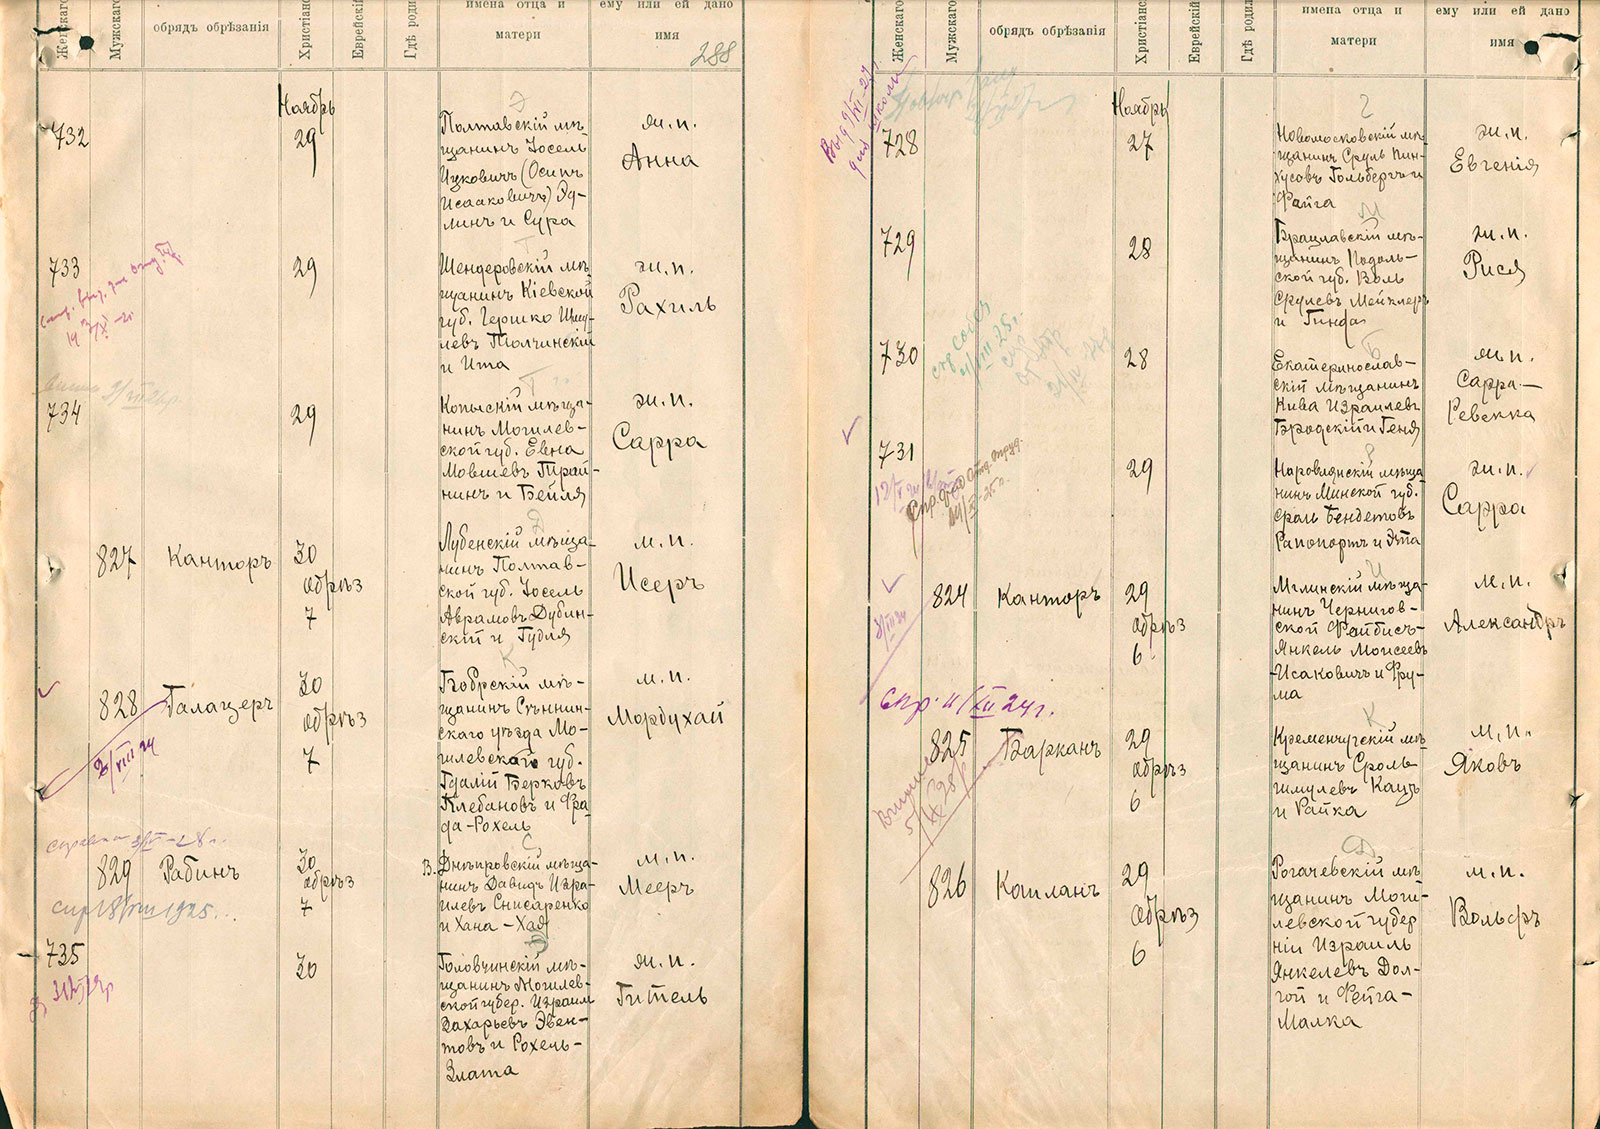 Женскаго
Мужскаго
обрядъ обрѣзанія
Христіанс
Еврейскій
Гдѣ роди
имена отца и
матери
ему или ей дано
имя
288
Ноябрь
732
29
Полтавскій мѣ-
щанинъ Іосель
Ицковичъ (Осипъ
Исааковичъ) Эд-
линъ и Сура
ж.п.
Анна
733
29
Шендеровскій мѣ
щанинъ Кіевской
губ. Гершко Шму-
левъ Толчинскій
и Ита
ж.п.
Рахиль
734
29
Копысскій мѣща-
нинъ Могилев-
ской губ. Евна
Мовшевъ Трай-
нинъ и Бейля
ж.п.
Сарра
827
Канторъ
30
обрѣз
7
Лубенскій мѣща-
нинъ Полтав-
ской губ. Іосель
Аврамовъ Дубин-
скій и Гудля
м.п.
Исеръ
828
Галацеръ
30
обрѣз
7
2/VIII 24
Бобрскій мѣ-
щанинъ Сѣннин-
скаго уѣзда Мо-
гилевскаго губ.
Гдалій Берковъ
Клебановъ и Фра
да-Рохель
м.п.
Мордухай
829
Рабинъ
30
обрѣз
7
В.
Днѣпровскій мѣща-
нинъ Давидъ Изра-
илевъ Снисаренко
и Хана-Хая
м.п.
Мееръ
735
30
Головчинскій мѣ-
щанинъ Могилев-
ской губер. Израиль
Захарьевъ Эвен-
товъ и Рохель-
Злата
ж.п.
Гитель
Женскаго
Мужскаго
обрядъ обрѣзанія
Христіанс
Еврейскій
Гдѣ родил
имена отца и
матери
ему или ей дано
имя
Ноябрь
728
27
Новомосковскій мѣ
щанинъ Сруль Пин-
хусовъ Гольбергъ и
Файга
ж.п.
Евгенія
729
28
Брацлавскій мѣ-
щанинъ Подоль-
ской губ. Воль
Срулевъ Мейклеръ
и Гинда
ж.п.
Рися
730
28
Екатеринослав-
скій мѣщанинъ
Кива Израилевъ
Бродскій и Геня
ж.п.
Сарра-
Ревекка
731
29
Наровлянскій мѣща
нинъ Минской губ.
Сроль Бендетовъ
Рапопортъ и Эта
ж.п.
Сарра
824
Канторъ
29
обрѣз
6
Мглинскій мѣща-
нинъ Чернигов-
ской Файбисъ-
Янкель Моисеевъ
Исаковичъ и Фру-
ма
м.п.
Александръ
спр. 11/XII 24г.
825
Барканъ
29
обрѣз
6
Кременчугскій мѣ
щанинъ Сроль
Шмулевъ Кацъ
и Райка
м.п.
Яковъ
826
Капланъ
29
обрѣз
6
Рогачевскій мѣ
щанинъ Моги-
левской губер
ніи Израиль
Янкелевъ Дол-
гой и Фейга-
Малка
м.п.
Вольфъ